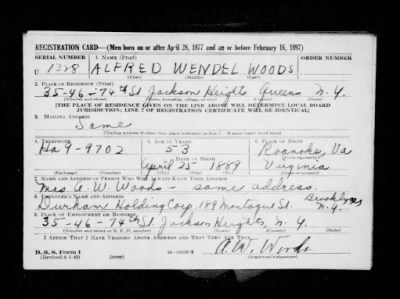 REGISTRATION CARD—(Men born on or after April 28, 1877 and on or before February 16, 1897)
SERIAL NUMBER 1. NAME (Print) ORDER NUMBER
U 1328 ALFRED WENDEL WOODS
2. PLACE OF RESIDENCE (Print)
35-46-74th St Jackson Heights Queens N.Y.
[THE PLACE OF RESIDENCE GIVEN ON THE LINE ABOVE WILL DETERMINE LOCAL BOARD
JURISDICTION; LINE 2 OF REGISTRATION CERTIFICATE WILL BE IDENTICAL]
3. MAILING ADDRESS
Same
[Mailing address if other than place indicated on line 2. If same insert word same]
4. TELEPHONE 5. AGE IN YEARS 6. PLACE OF BIRTH
Ha 9-9702 53 Roanoke, Va
DATE OF BIRTH
April 25 - 1889 Virginia
7. NAME AND ADDRESS OF PERSON WHO WILL ALWAYS KNOW YOUR ADDRESS
Mrs A. W. Woods - same address.
8. EMPLOYER'S NAME AND ADDRESS
Durham Holding Corp. 189 Montague St. Brooklyn N.Y.
9. PLACE OF EMPLOYMENT OR BUSINESS
35-46-74th St Jackson Heights, N.Y.
I AFFIRM THAT I HAVE VERIFIED ABOVE ANSWERS AND THAT THEY ARE TRUE.
D. S. S. Form 1
(Revised 4-1-42)
A. W. Woods